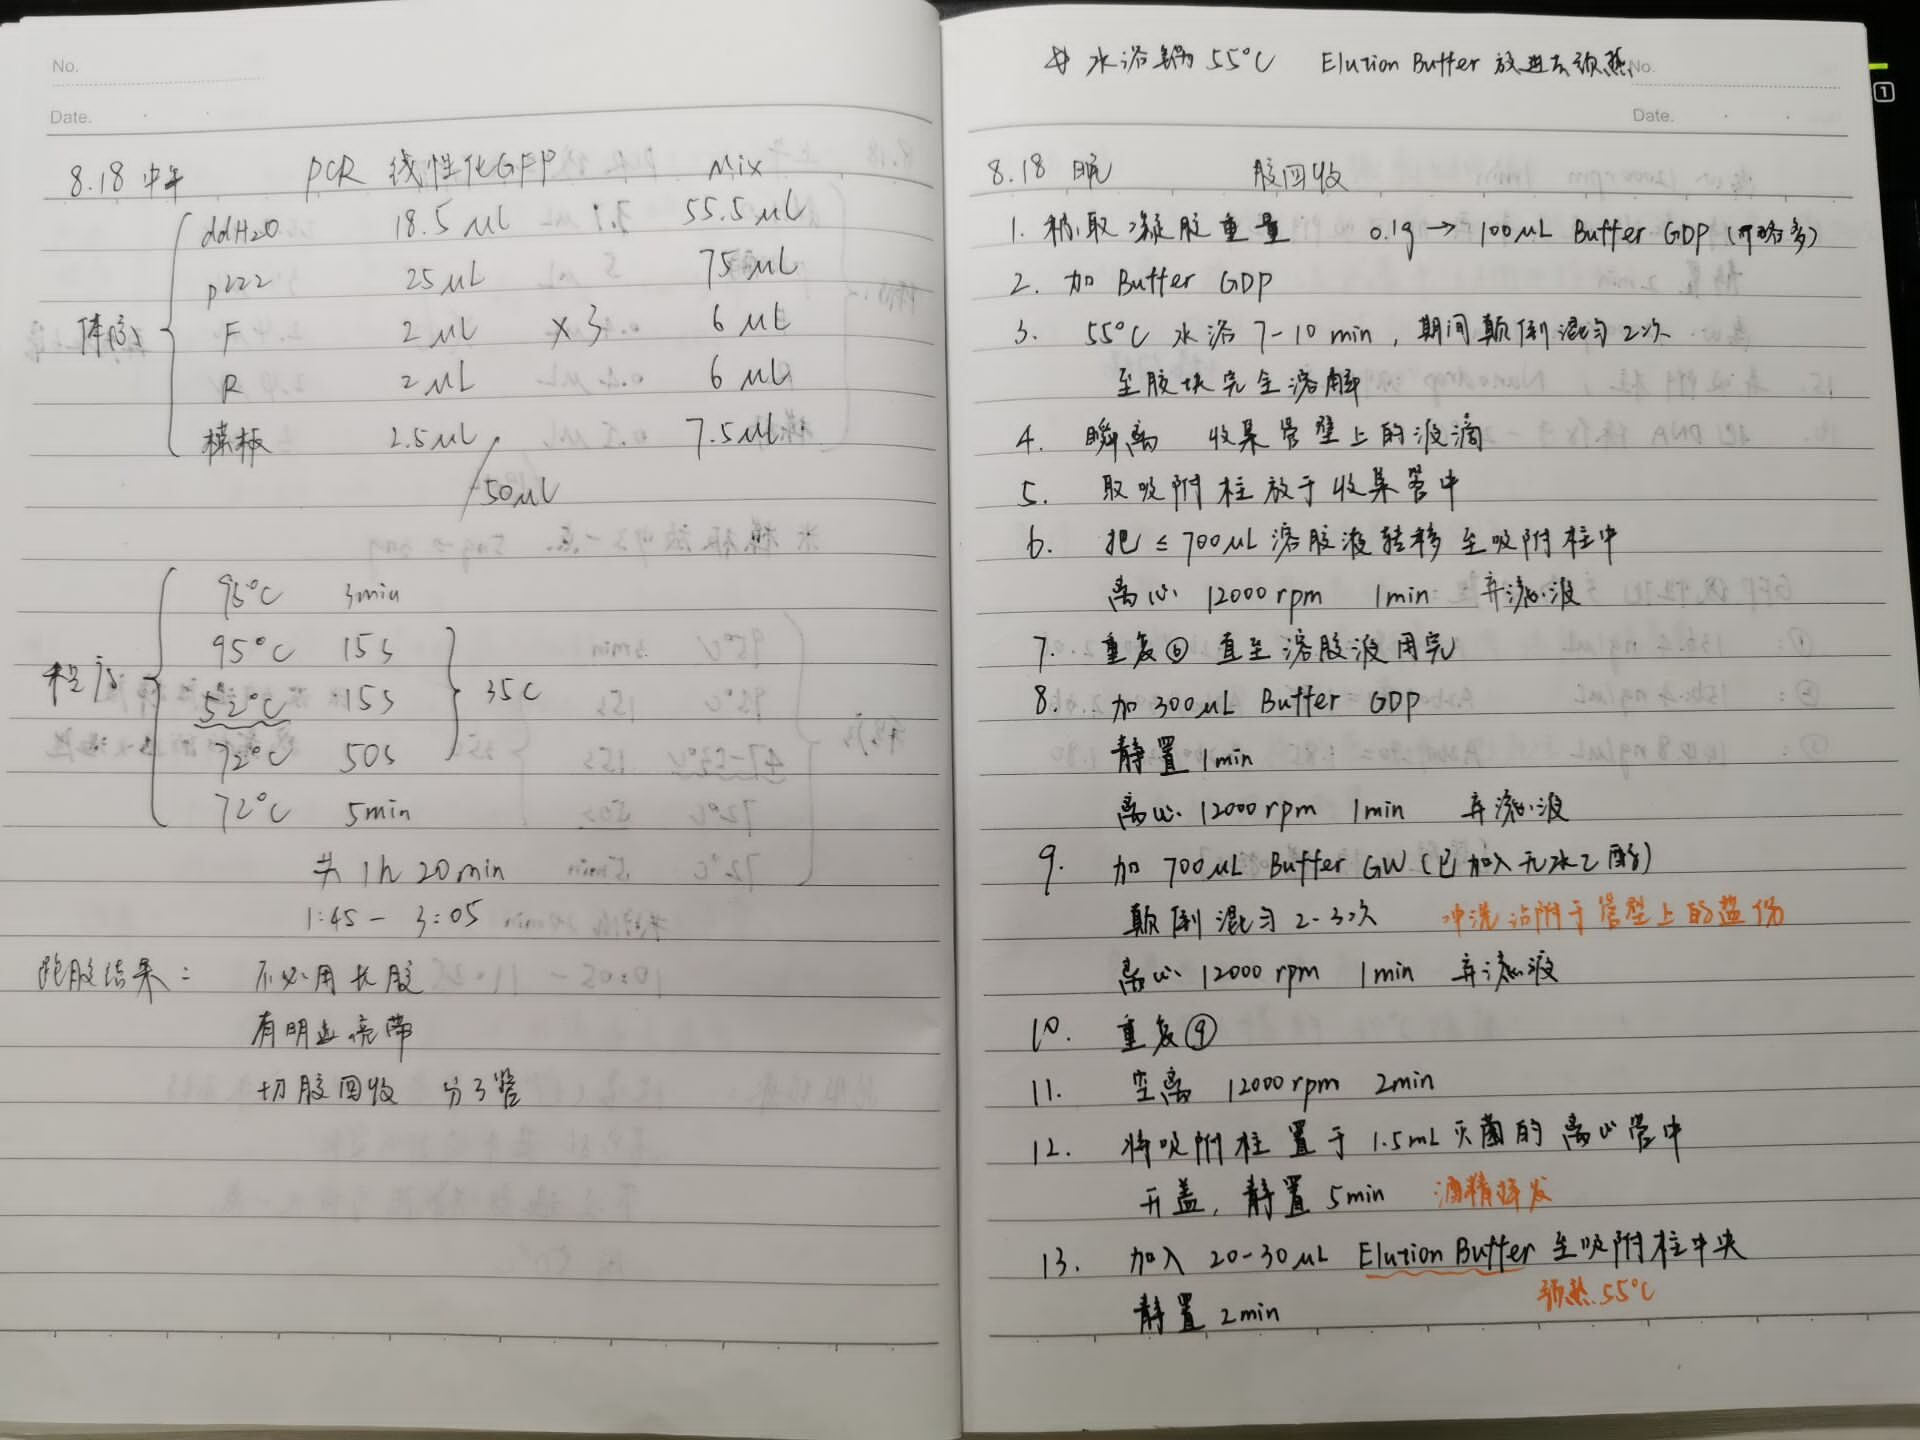 No.
Date.
8.18 中午 PCR 线性化GFP Mix
体系
ddH2O 18.5 μL 55.5 μL
p222 25 μL 75 μL
F 2 μL ×3 6 μL
R 2 μL 6 μL
模板 2.5 μL 7.5 μL
50 μL
程序
95°C 3min
95°C 15s
52°C 15s 35C
72°C 50s
72°C 5min
共 1h 20min
1:45 - 3:05
跑胶结果: 不必用长胶
有明显亮带
切胶回收 分3管
水浴锅 55°C Elution Buffer 放进去预热
No.
Date.
8.18 晚 胶回收
1. 称取凝胶重量 0.1g → 100μL Buffer GDP (可略多)
2. 加 Buffer GDP
3. 55°C 水浴 7-10 min, 期间颠倒混匀2次
至胶块完全溶解
4. 瞬离 收集管壁上的液滴
5. 取吸附柱放于收集管中
6. 把 ≤ 700μL 溶胶液转移至吸附柱中
离心 12000 rpm 1min 弃滤液
7. 重复⑥ 直至溶胶液用完
8. 加 300μL Buffer GDP
静置 1min
离心 12000 rpm 1min 弃滤液
9. 加 700μL Buffer GW (已加入无水乙醇)
颠倒混匀 2-3次 冲洗沾附于管壁上的盐份
离心 12000 rpm 1min 弃滤液
10. 重复⑨
11. 空离 12000 rpm 2min
12. 将吸附柱置于 1.5mL 灭菌的离心管中
开盖, 静置 5min 酒精挥发
13. 加入 20-30 μL Elution Buffer 至吸附柱中央
预热 55°C
静置 2min
1